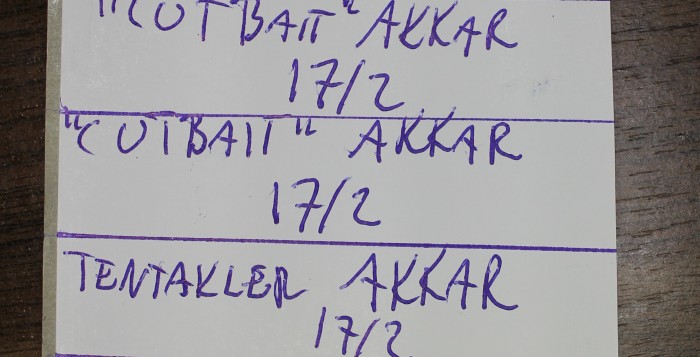 "CUTBAIT" AKKAR
17/2
"CUTBAIT" AKKAR
17/2
TENTAKLER AKKAR
17/2